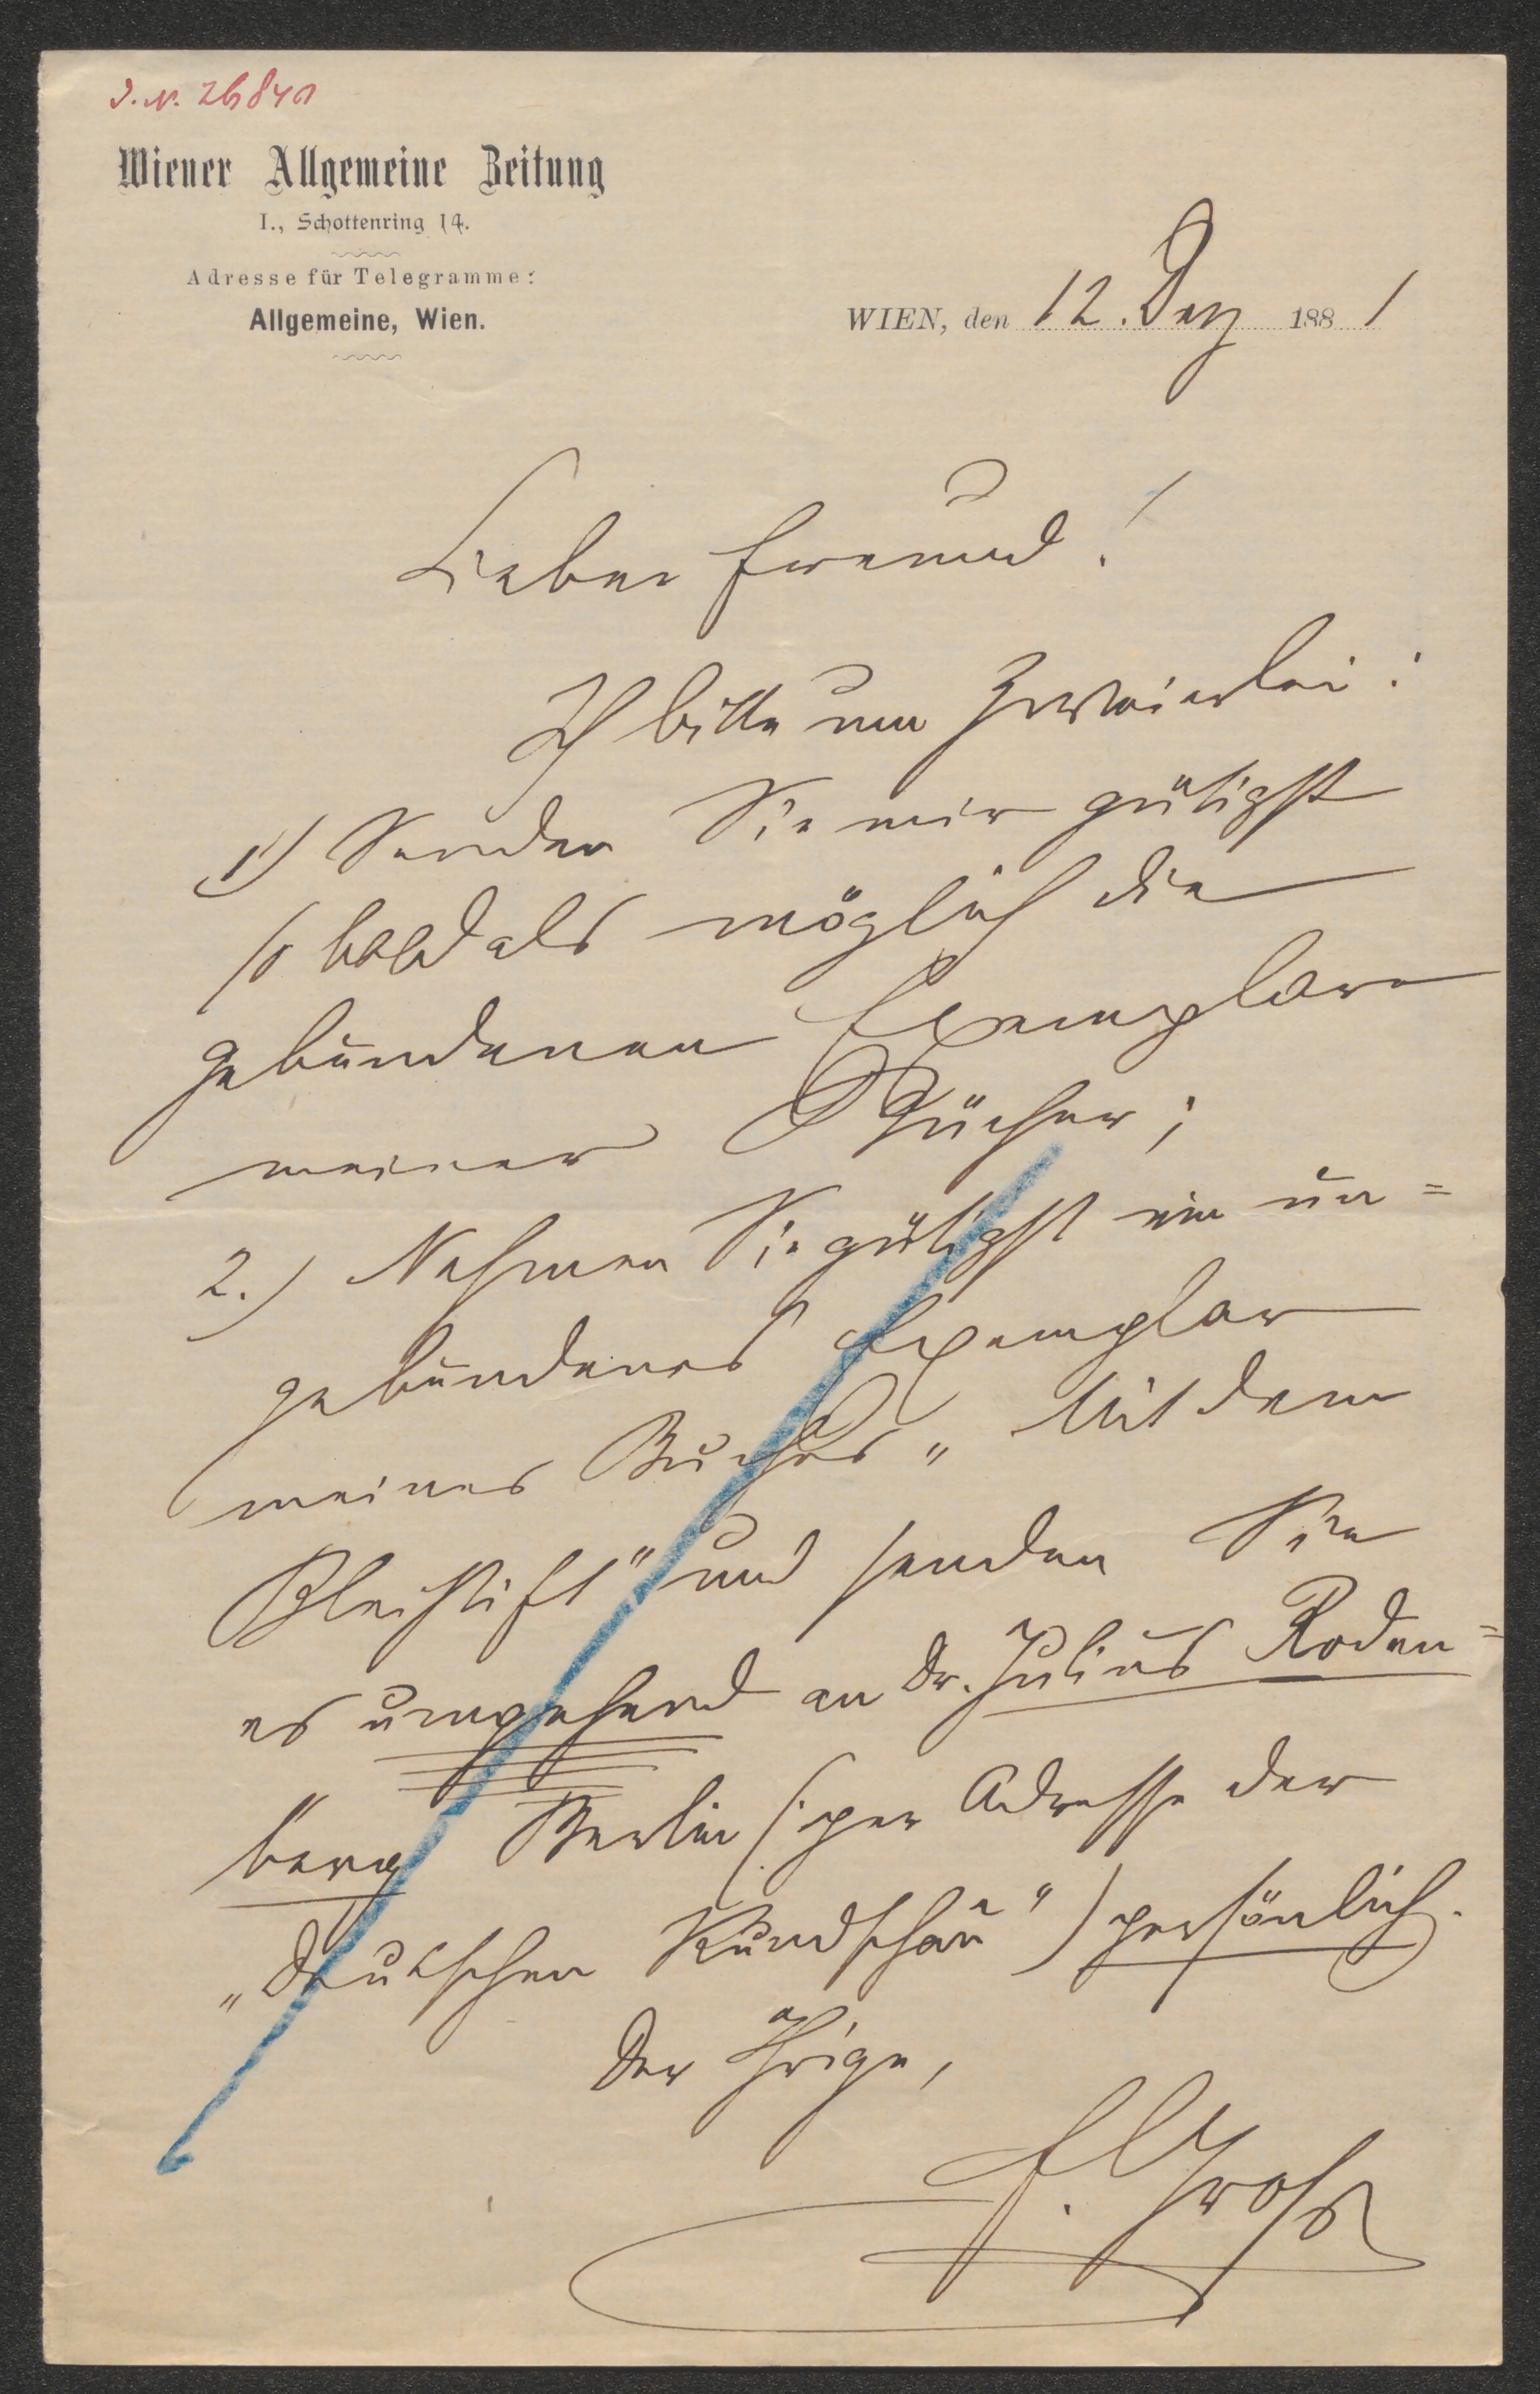 J. N. 26840
Wiener Allgemeine Zeitung
I., Schottenring 14.
Adresse für Telegramme:
Allgemeine, Wien.
WIEN, den 12. Dez 1881
Lieber Freund!
Ich bitte um Zweierlei:
1) Senden Sie mir gütigst
so bald als möglich die
gebundenen Exemplare
meiner Bücher;
2.) Nehmen Sie gütigst ein un=
gebundenes Exemplar
meines Buches „Mit dem
Bleistift" und senden Sie
es umgehend an Dr. Julius Roden=
berg Berlin (per Adresse der
„Deutschen Rundschau") persönlich.
Der Ihrige,
F. Groß